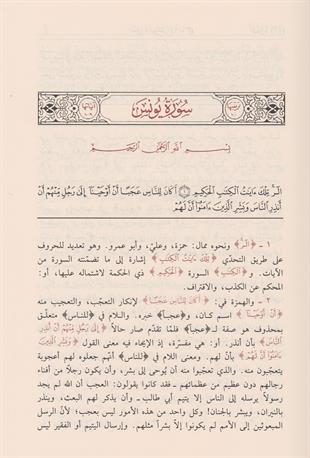 سورة يونس
بسم الله الرحمن الرحيم
الر تلك ءايت الكتب الحكيم أكان للناس عجبا أن أوحينا إلى رجل منهم أن
أنذر الناس وبشر الذين ءامنوا أن لهم
١ ـ ﴿الر﴾ ونحوه ممال: حمزة، وعلي، وأبو عمرو. وهو تعديد للحروف
على طريق التحدّي ﴿تلك ءايت الكتب﴾ إشارة إلى ما تضمّنته السورة من
الآيات. و ﴿الكتب﴾ السورة ﴿الحكيم﴾ ذي الحكمة لاشتماله عليها، أو:
المحكم عن الكذب، والافتراء.
٢ ـ والهمزة في: ﴿أكان للناس عجبا﴾ لإنكار التعجّب، والتعجيب منه
﴿أن أوحينا﴾ اسم كان، و﴿عجباً﴾ خبره. واللام في ﴿للناس﴾ متعلّق
بمحذوف هو صفة لـ ﴿عجباً﴾ فلمّا تقدّم صار حالاً ﴿إلى رجل منهم أن أنذر الناس﴾
بأن أنذر. أو: هي مفسّرة، إذ الإيحاء فيه معنى القول ﴿وبشر الذين
ءامنوا أن لهم﴾ بأنّ لهم. ومعنى اللام في ﴿للناس﴾ أنهم جعلوه لهم أعجوبة
يتعجبون منه. والذي تعجّبوا منه أن يُوحى إلى بشر، وأن يكون رجلاً من أفناء
رجالهم دون عظيم من عظمائهم ـ فقد كانوا يقولون: العجب أن الله لم يجد
رسولاً يرسله إلى الناس إلا يتيم أبي طالب ـ وأن يذكر لهم البعث، وينذر
بالنيران، ويبشر بالجنان! وكل واحد من هذه الأمور ليس بعجب؛ لأنّ الرسل
المبعوثين إلى الأمم لم يكونوا إلاّ بشراً مثلهم. وإرسال اليتيم أو الفقير ليس